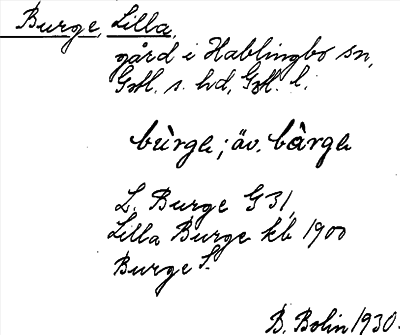 Burge, Lilla,
gård i Hablingbo sn,
Gotl. s. hd, Gotl. l.
bùrge; äv. bàrge
L. Burge G 31,
Lilla Burge kb 1900
Burge S.
B. Bolin 1930.